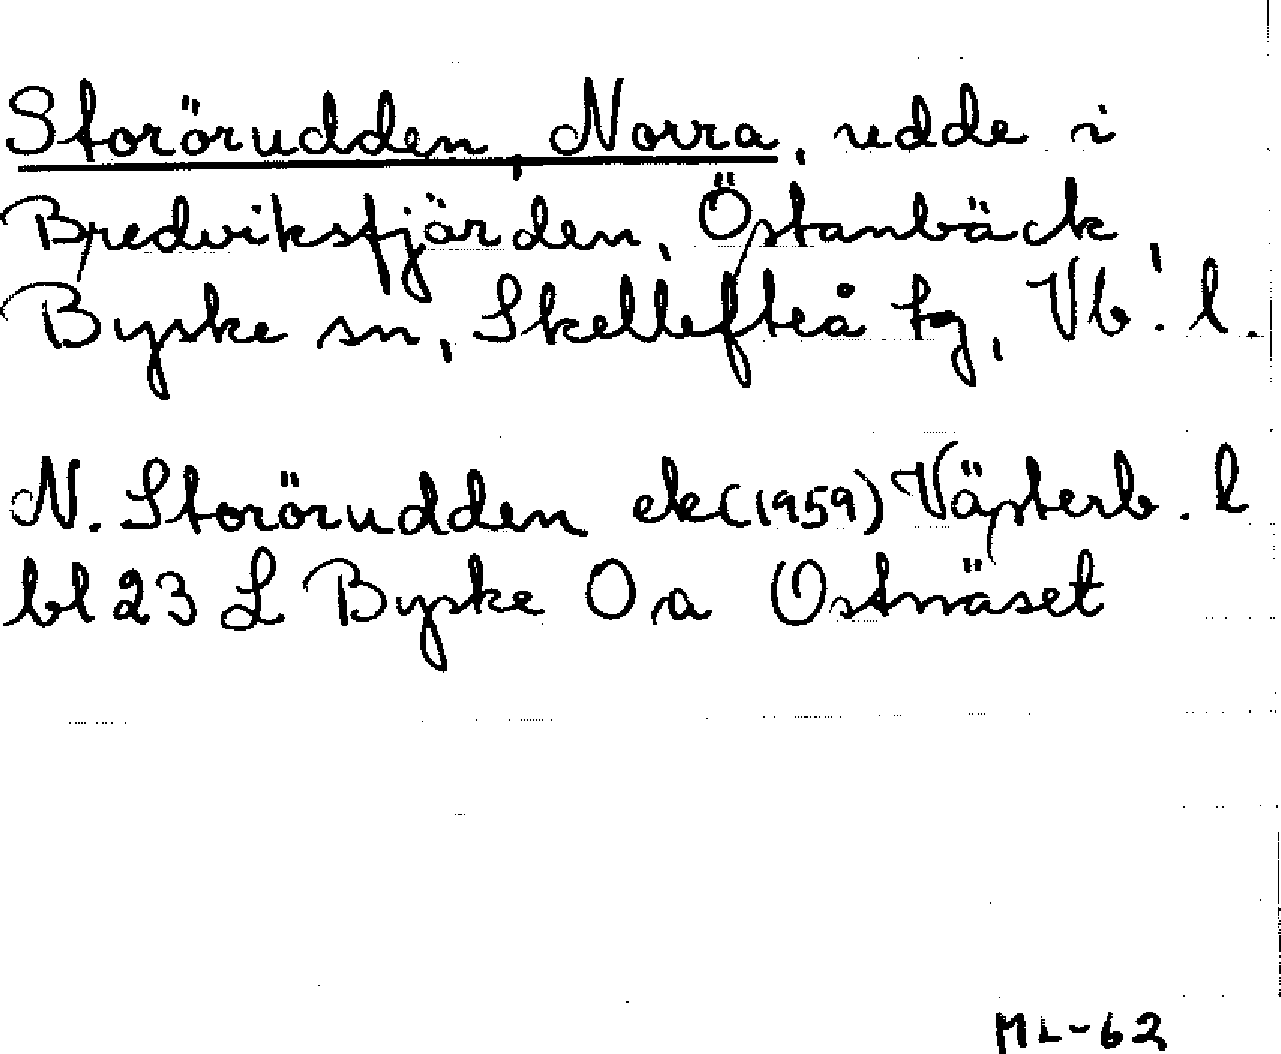 Storörudden, Norra, udde i
Bredviksfjärden, Östanbäck,
Byske sn, Skellefteå tg, Vb. l.
N. Storörudden ek (1959) Västerb. l
bl 23 L Byske O, a Ostnäset
ML-62